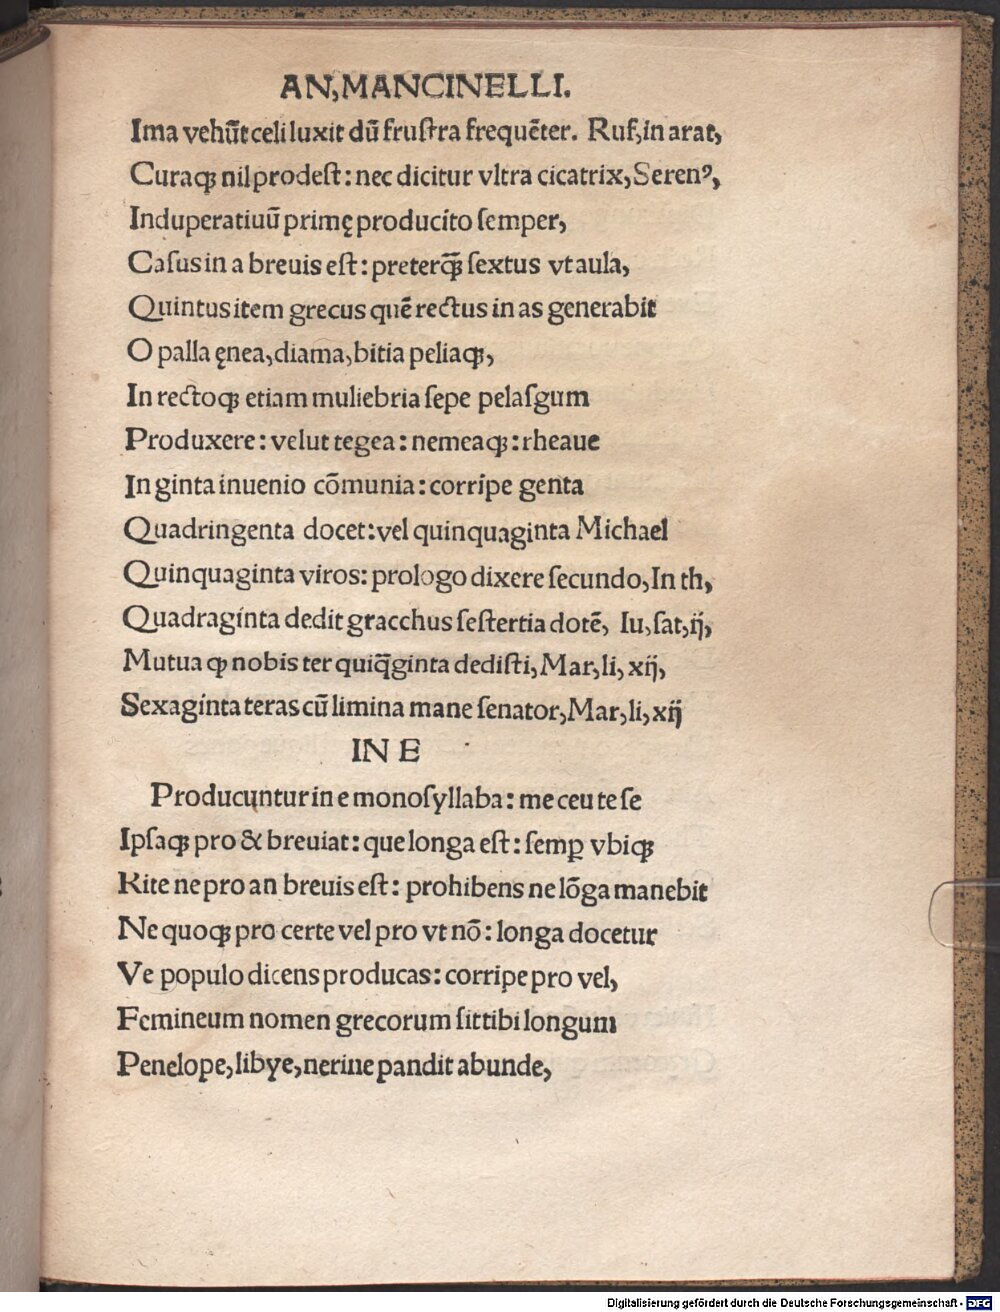 AN,MANCINELLI.
Ima vehūt celi luxit dū fruſtra frequēter. Ruf,in arat,
Curaqꝫ nil prodeſt: nec dicitur vltra cicatrix,Serenꝰ,
Induperatiuū primę producito ſemper,
Caſus in a breuis eſt: preterꝙ̄ ſextus vt aula,
Quintus item grecus quē rectus in as generabit
O palla ęnea,diama,bitia peliaqꝫ,
In rectoqꝫ etiam muliebria ſepe pelaſgum
Produxere: velut tegea: nemeaqꝫ: rheaue
In ginta inuenio cōmunia: corripe genta
Quadringenta docet: vel quinquaginta Michael
Quinquaginta viros: prologo dixere ſecundo,In th,
Quadraginta dedit gracchus ſeſtertia dotē, Iu,ſat,ij,
Mutua ꝙ nobis ter quiq̄ginta dediſti,Mar,li,xij,
Sexaginta teras cū limina mane ſenator,Mar,li,xij
IN E
Producuntur in e monoſyllaba: me ceu te ſe
Ipſaqꝫ pro & breuiat: que longa eſt: ſemꝑ vbiqꝫ
Rite ne pro an breuis eſt: prohibens ne lōga manebit
Ne quoqꝫ pro certe vel pro vt nō: longa docetur
Ve populo dicens producas: corripe pro vel,
Femineum nomen grecorum ſit tibi longum
Penelope,libye,nerine pandit abunde,
Digitalisierung gefördert durch die Deutsche Forschungsgemeinschaft - DFG